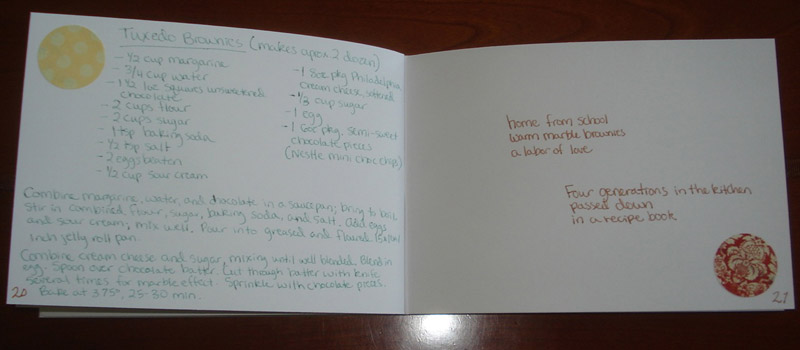 Tuxedo Brownies (makes apox 2 dozen)
- 1/2 cup margarine
- 3/4 cup water
- 1 1/2 1oz squares unsweetened
chocolate
- 2 cups flour
- 2 cups sugar
- 1 tsp baking soda
- 1/2 tsp salt
- 2 eggs beaten
- 1/2 cup sour cream
- 1 8oz pkg Philadelphia
cream cheese, softened
- 1/3 cup sugar
- 1 egg
- 1 6oz pkg. semi-sweet
chocolate pieces
(Nestle mini choc chips)
Combine margarine, water, and chocolate in a saucepan; bring to boil.
Stir in combined flour, sugar, baking soda, and salt. Add eggs
and sour cream; mix well. Pour into greased and floured 15x10x1
inch jelly roll pan.
Combine cream cheese and sugar, mixing until well blended. Blend in
egg. Spoon over chocolate batter. Cut through batter with knife
several times for marble effect. Sprinkle with chocolate pieces.
Bake at 375°, 25-30 min.
20
home from school
warm marble brownies
a labor of love
Four generations in the kitchen
passed down
in a recipe book
21